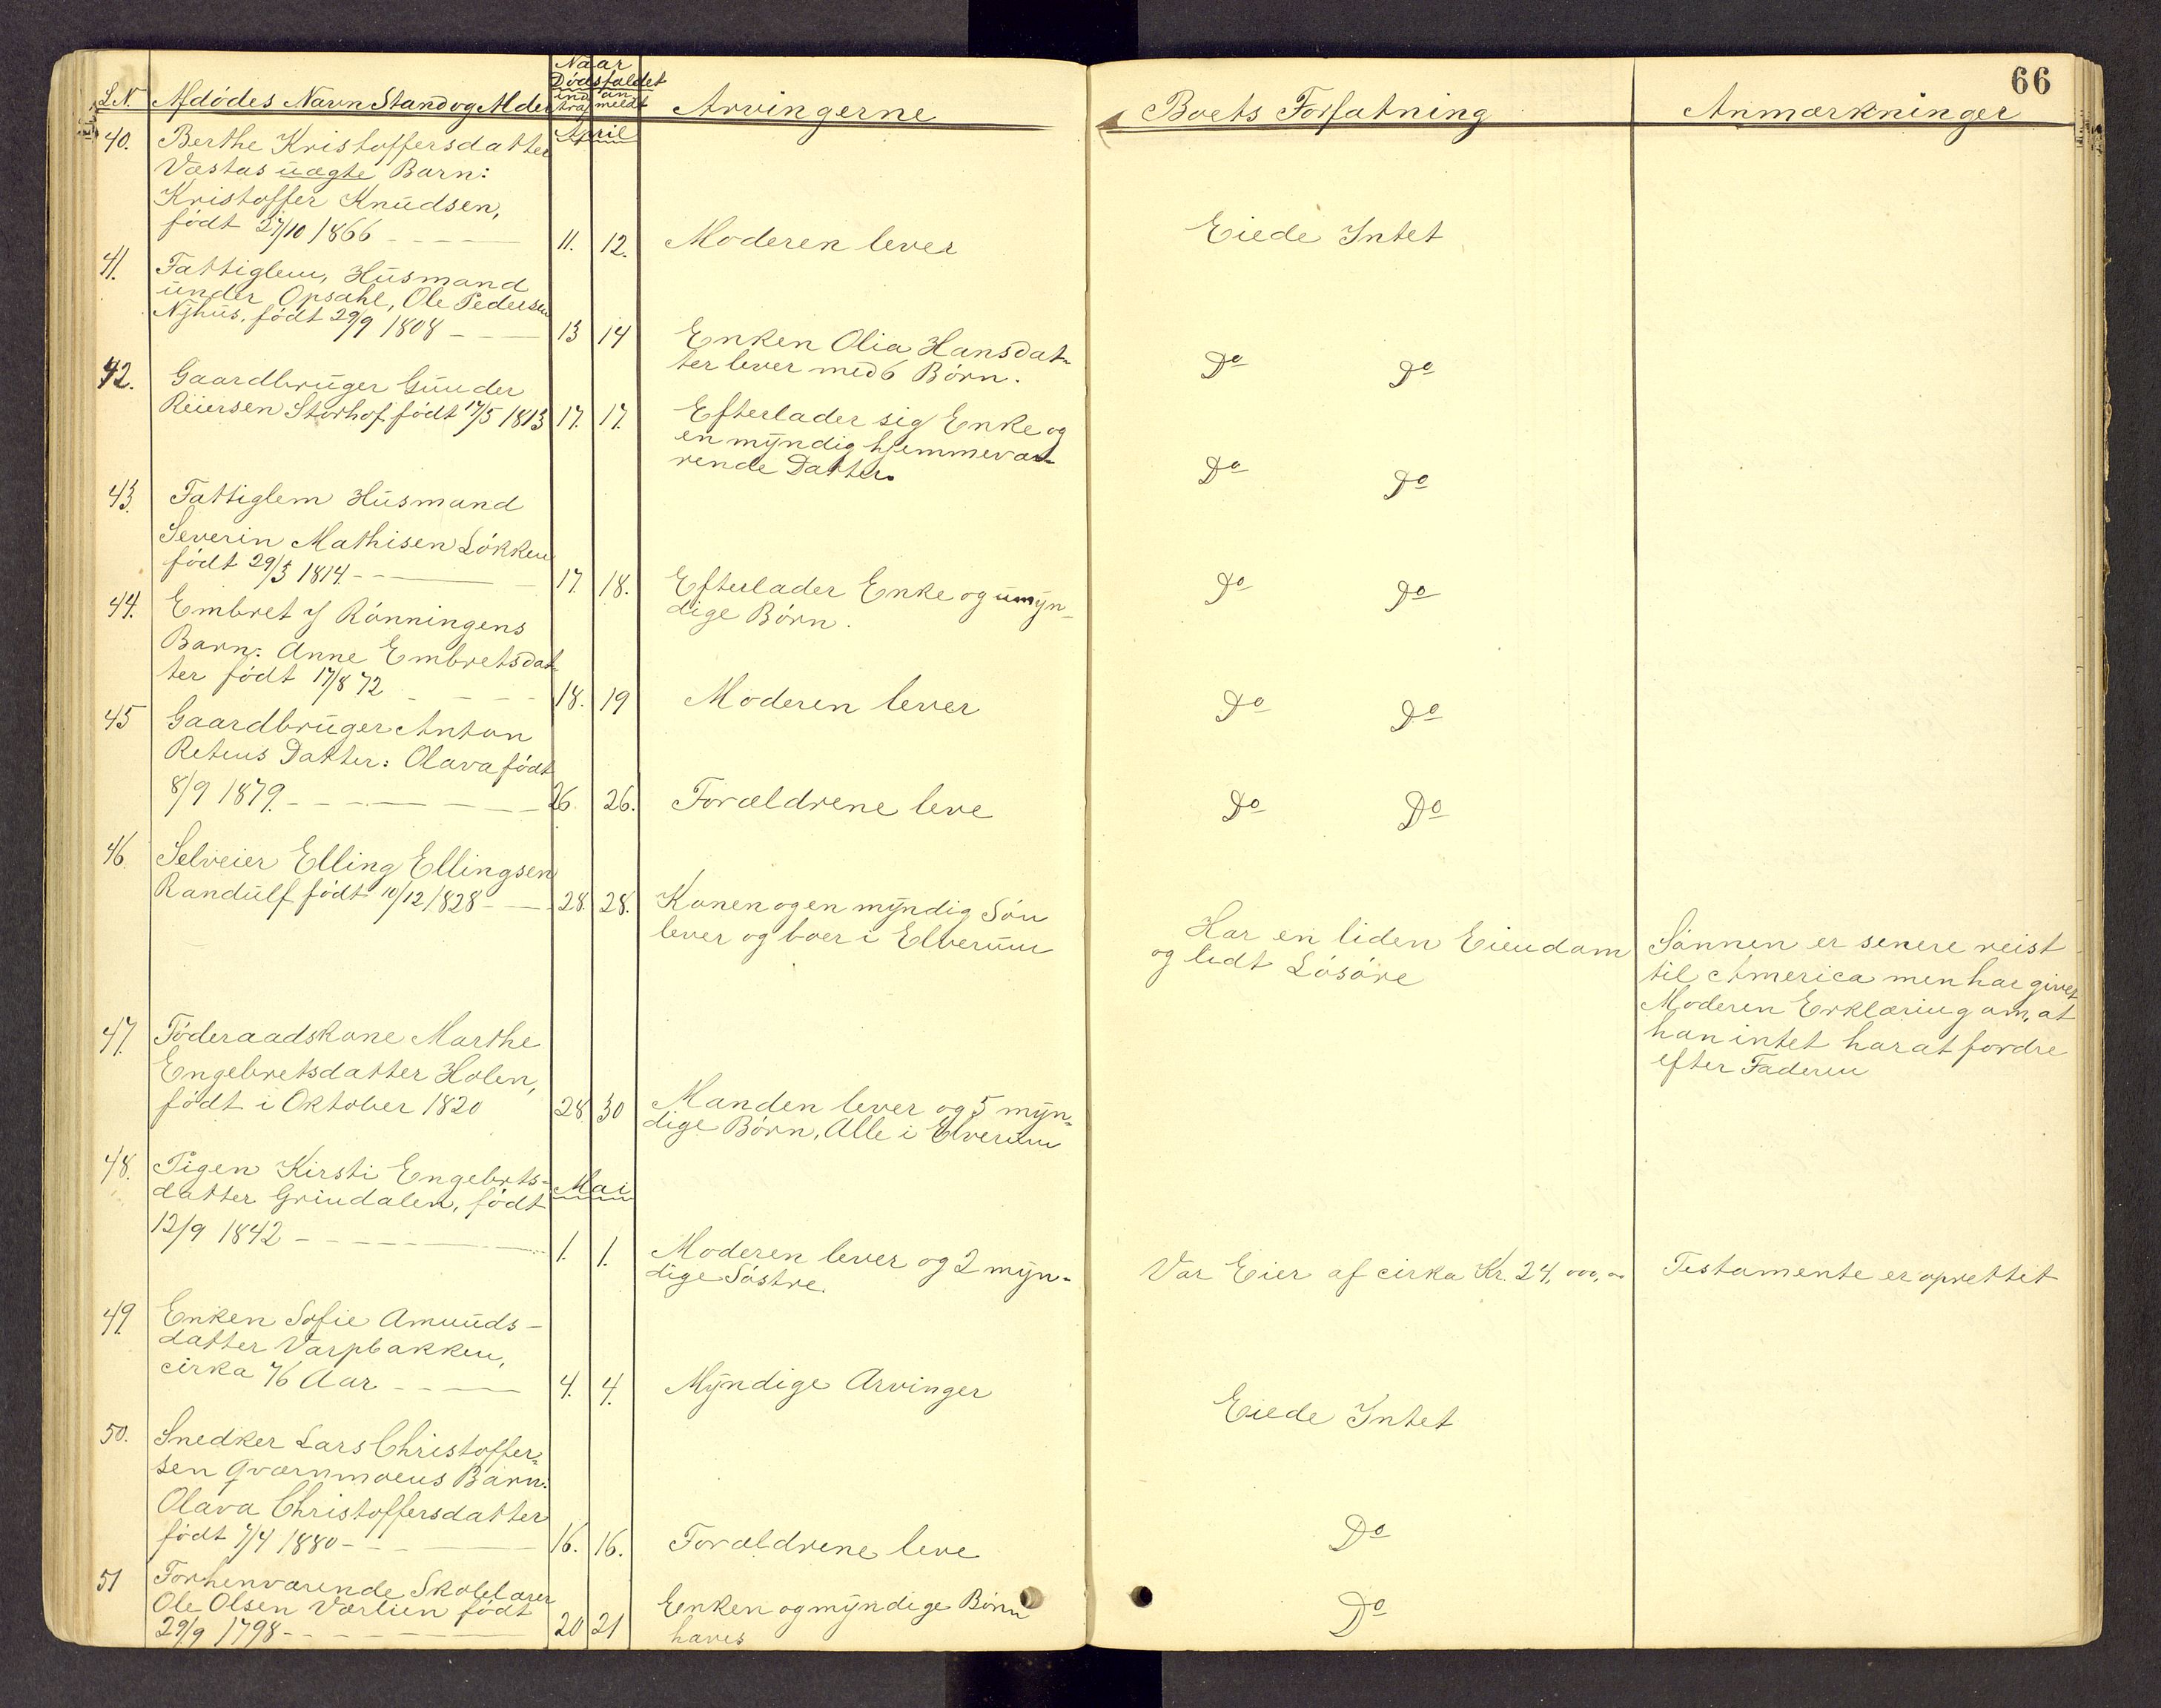 66
L.N. Afdödes Navn Stand og Alder
Naar
Dödsfaldet
ind an
traf meldt
Arvingerne
Boets Forfatning
Anmærkninger
April
40. Berthe Kristoffersdatter
Væstas uægte Barn:
Kristoffer Knudsen,
födt 27/10 1866 11. 12. Moderen lever Eiede Intet
41. Fattiglem, Husmand
under Opsahl, Ole Pedersen
Nyhus, födt 29/9 1808 13 14 Enken Olia Hansdat-
ter lever med 6 Börn. Do Do
42. Gaardbruger Gunder
Reiersen Storhof födt 17/5 1813 17. 17. Efterlader sig Enke og
en myndig hjemmevæ-
rende Datter. Do Do
43. Fattiglem Husmand
Severin Mathisen Lökken
födt 29/3 1814 17. 18. Efterlader Enke og umyn-
dige Börn. Do Do
44. Embret Rönningens
Barn: Anne Embretsdat-
ter födt 17/8 72 18. 19 Moderen lever Do Do
45 Gaardbruger Anton
Retens Datter: Olava födt
8/9 1879. 26. 26. Forældrene leve Do Do
46. Selveier Elling Ellingsen
Randulf födt 10/12 1828 28. 28. Konen og en myndig Sön
lever og boer i Elverum
Har en liden Eiendom
og lidt Lösöre
Sönnen er senere reist
til America men har givet
Moderen Erklæring om, at
han intet har at fordre
efter Faderen
47. Föderaadskone Marthe
Engebretsdatter Holen,
födt i Oktober 1820 28 30 Manden lever og 5 myn-
dige Börn, Alle i Elverum
48. Pigen Kirsti Engebrets-
datter Grindalen, födt
Mai
12/9 1842 1. 1. Moderen lever og 2 myn-
dige Söstre.
Var Eier af cirka Kr. 24,000,00 Testamente er oprettet
49. Enken Sofie Amunds-
datter Varpbakken,
cirka 76 Aar 4. 4. Myndige Arvinger Eiede Intet
50. Snedker Lars Christoffer-
sen Qværnmoens Barn:
Olava Christoffersdatter
födt 7/4 1880 16. 16. Forældrene leve Do
51 Forhenværende Skolelærer
Ole Olsen Værlien födt
29/9 1798 20 21 Enken og myndige Börn
haves Do